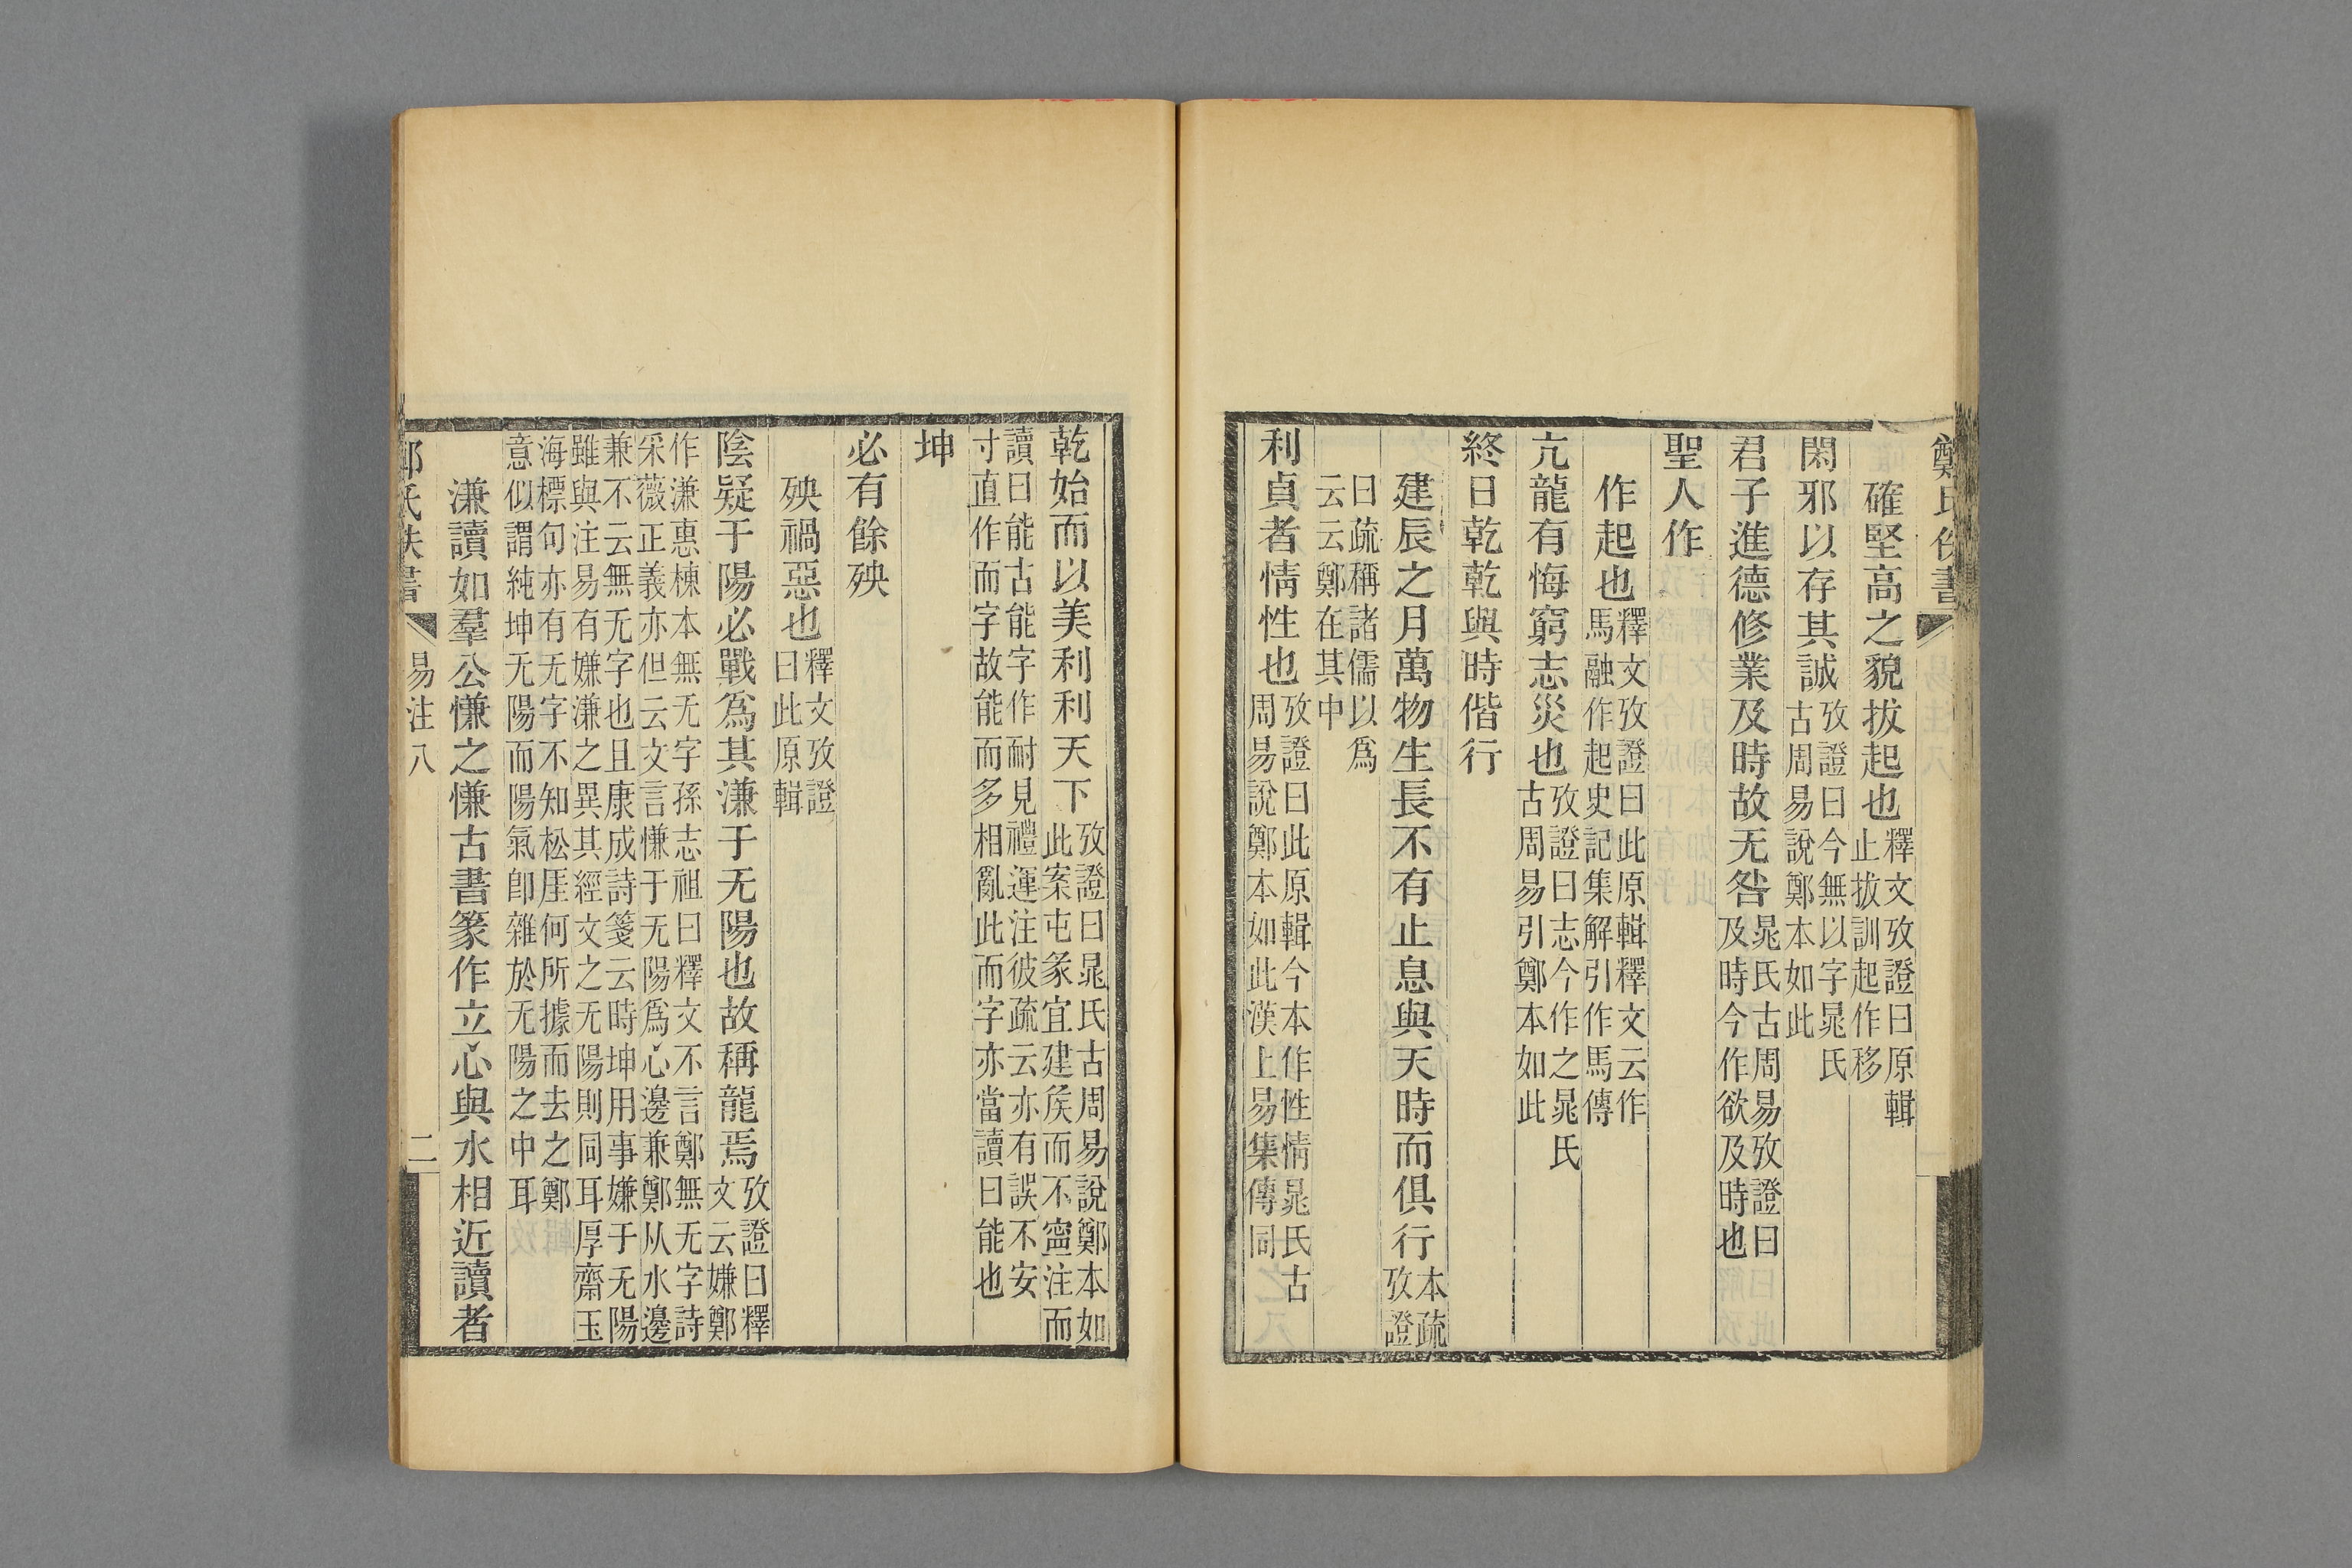 確堅高之貌拔起也釋文攷證曰原輯
止拔訓起作移
閑邪以存其誠攷證曰今無以字晁氏
古周易說鄭本如此
君子進德修業及時故无咎晁氏古周易攷證曰
及時今作欲及時也
聖人作
作起也釋文攷證曰此原輯釋文云作
馬融作起史記集解引作馬傳
亢龍有悔窮志災也攷證曰志今作之晁氏
古周易引鄭本如此
終日乾乾與時偕行
建辰之月萬物生長不有止息與天時而俱行本疏
攷證
曰疏稱諸儒以爲
云云鄭在其中
利貞者情性也攷證曰此原輯今本作性情晁氏古
周易說鄭本如此漢上易集傳同
乾始而以美利利天下攷證曰晁氏古周易說鄭本如
此案屯彖宜建矦而不寧注而
讀曰能古能字作耐見禮運注彼疏云亦有誤不安
寸直作而字故能而多相亂此而字亦當讀曰能也
坤
必有餘殃
殃禍惡也釋文攷證
曰此原輯
陰疑于陽必戰爲其溓于无陽也故稱龍焉攷證曰釋
文云嫌鄭
作溓惠棟本無无字孫志祖曰釋文不言鄭無无字詩
采薇正義亦但云文言慊于无陽爲心邊兼鄭从水邊
兼不云無无字也且康成詩箋云時坤用事嫌于无陽
雖與注易有嫌溓之異其經文之无陽則同耳厚齋玉
海標句亦有无字不知松厓何所據而去之鄭
意似謂純坤无陽而陽氣卽雜於无陽之中耳
溓讀如羣公慊之慊古書篆作立心與水相近讀者
易注八
二